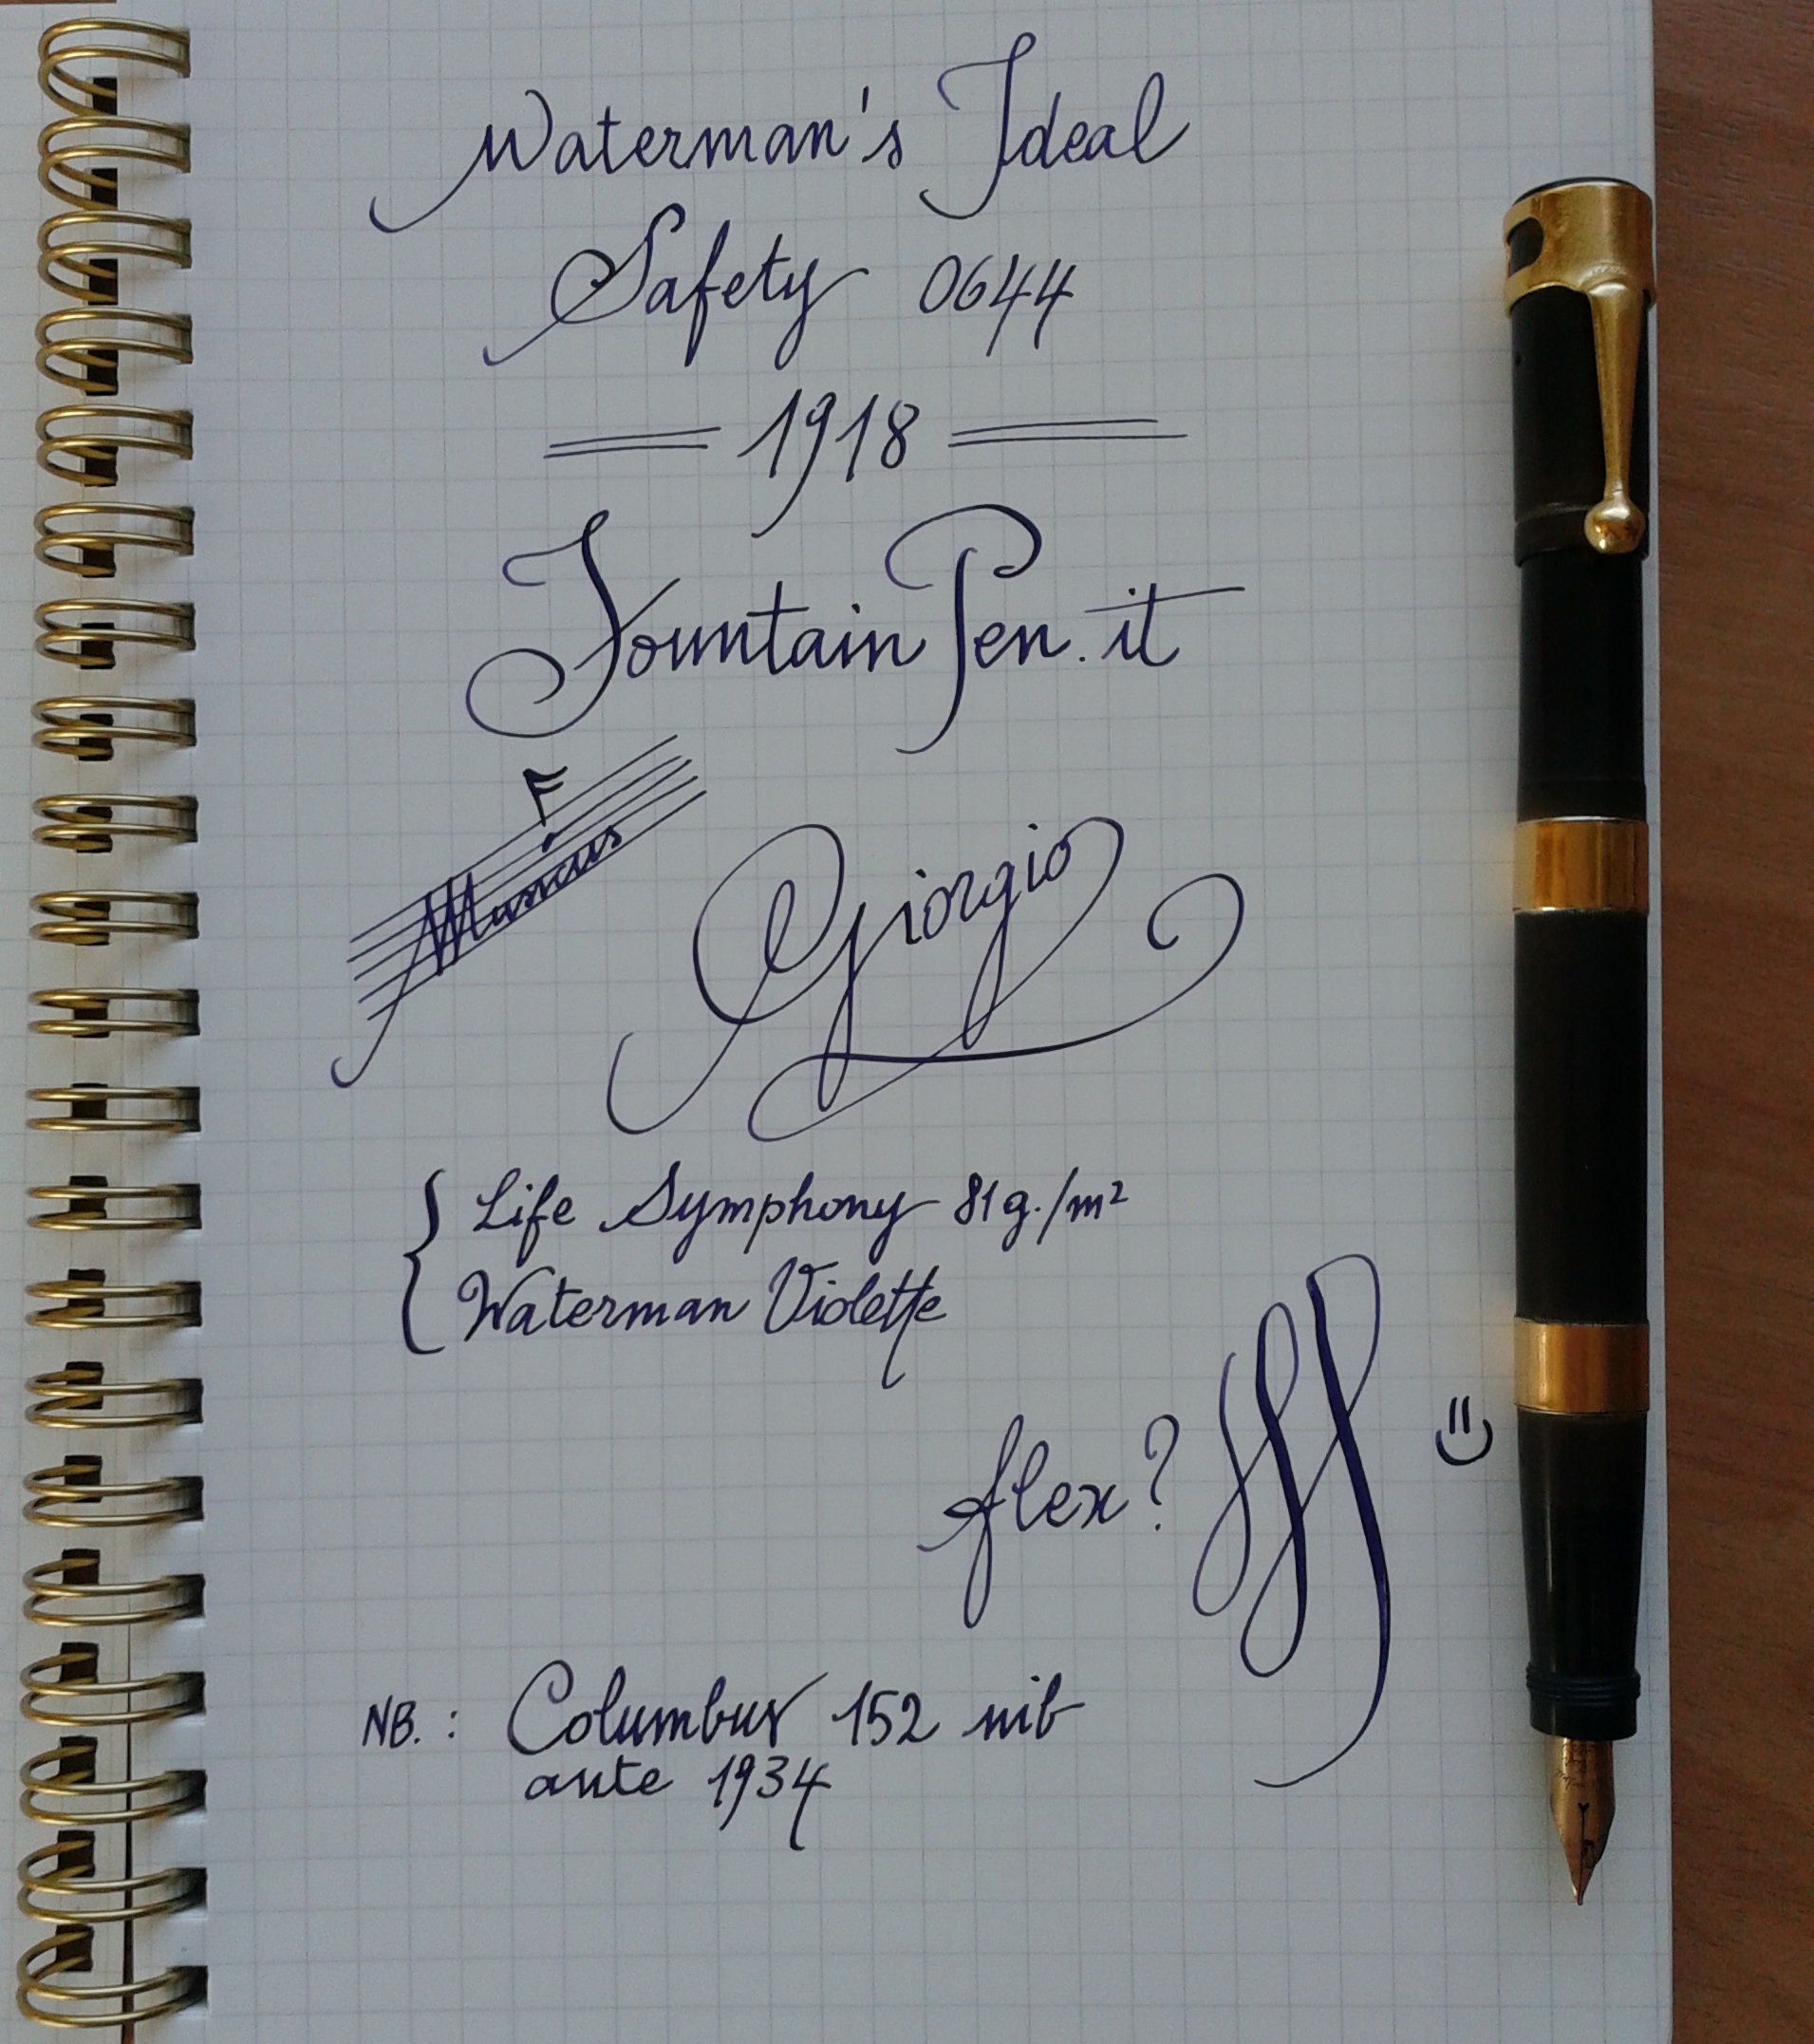 Waterman's Ideal
Safety 0644
1918
FountainPen.it
F
Musicus
Giorgio
Life Symphony 81g./m²
Waterman Violette
flex?
NB.: Columbus 152 nib
ante 1934